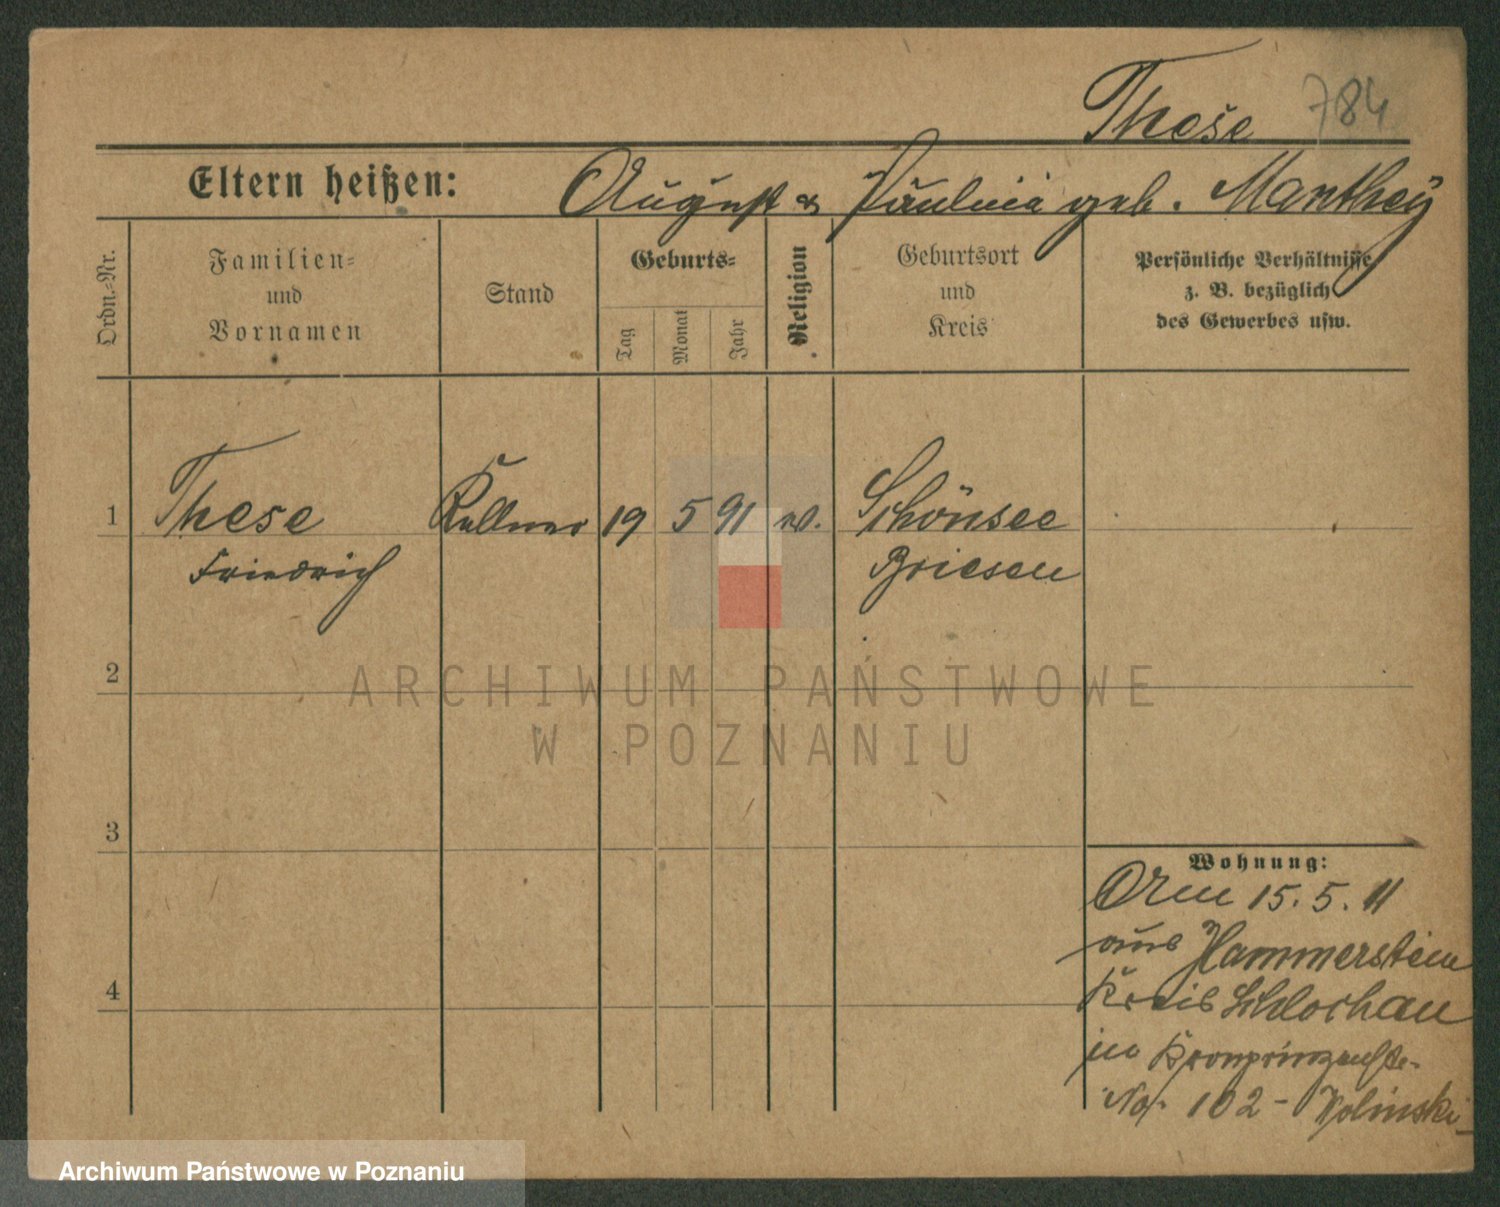 These 784
Eltern heißen: August & Paulina geb. Manthey
Ordn.-Nr.
Familien-
und
Vornamen
Stand
Geburts-
Tag
Monat
Jahr
Religion
Geburtsort
und
Kreis
Persönliche Verhältnisse
z. B. bezüglich
des Gewerbes usw.
1 These Kellner 19 5 91 ev. Schönsee
Friedrich Briesen
2
3
4
Wohnung:
Am 15. 5. 11
aus Hammerstein
Kreis Schlochau
in Kronprinzenstr.
No. 102 - Wolinski
ARCHIWUM PAŃSTWOWE
W POZNANIU
Archiwum Państwowe w Poznaniu